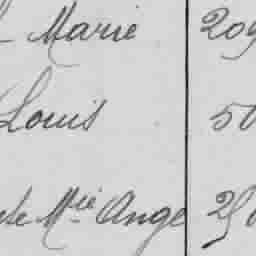 Marie 209
Louis 50
Mie Ange 250